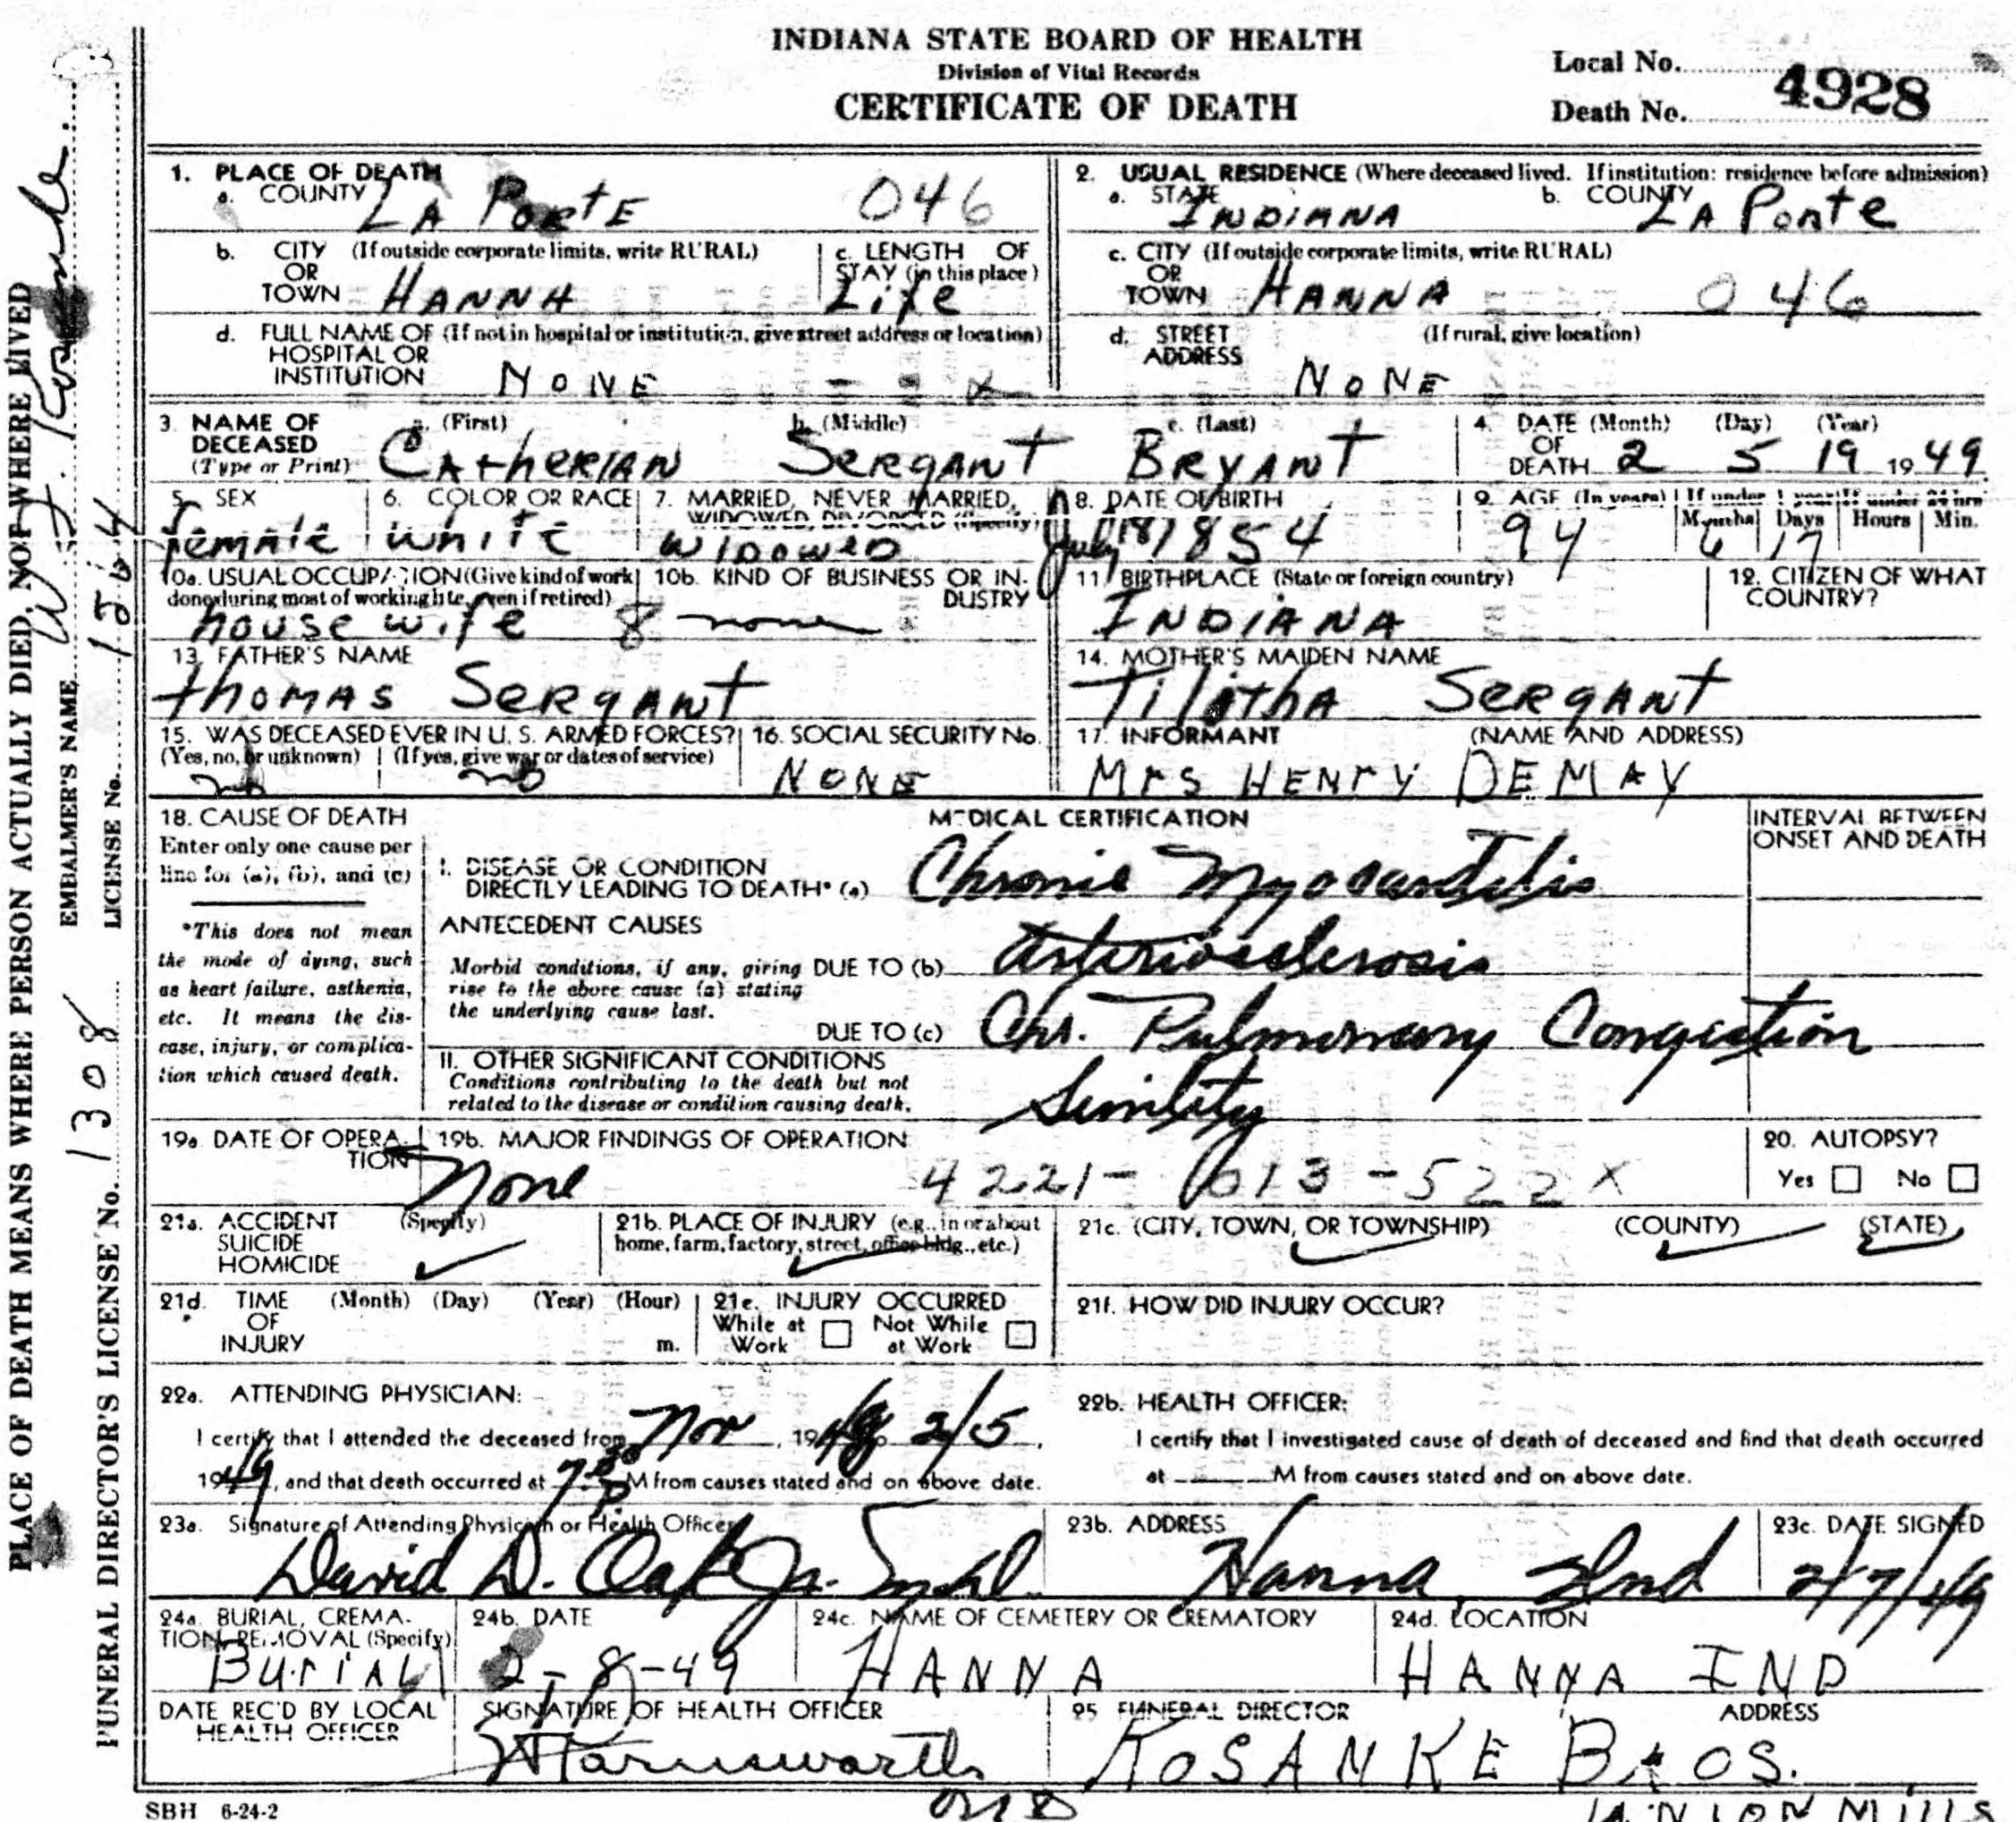 INDIANA STATE BOARD OF HEALTH
Division of Vital Records
CERTIFICATE OF DEATH
Local No.
Death No. 4928
1. PLACE OF DEATH
a. COUNTY LA PORTE 046
2. USUAL RESIDENCE (Where deceased lived. If institution: residence before admission)
a. STATE INDIANA b. COUNTY LA PORTE
b. CITY OR TOWN (If outside corporate limits, write RURAL) HANNA
c. LENGTH OF STAY (in this place) Life
c. CITY OR TOWN (If outside corporate limits, write RURAL) HANNA 046
d. FULL NAME OF HOSPITAL OR INSTITUTION (If not in hospital or institution, give street address or location) NONE
d. STREET ADDRESS (If rural, give location) NONE
3. NAME OF DECEASED (Type or Print)
a. (First) b. (Middle) c. (Last)
CATHERIAN SERGANT BRYANT
4. DATE OF DEATH (Month) (Day) (Year)
2 5 19 1949
5. SEX Female
6. COLOR OR RACE White
7. MARRIED, NEVER MARRIED, WIDOWED, DIVORCED (Specify) WIDOWED
8. DATE OF BIRTH July 18 1854
9. AGE (In years) 94
If under 1 year Months 6 Days 17
If under 24 hrs Hours Min.
10a. USUAL OCCUPATION (Give kind of work done during most of working life, even if retired) house wife 8
10b. KIND OF BUSINESS OR INDUSTRY none
11. BIRTHPLACE (State or foreign country) INDIANA
12. CITIZEN OF WHAT COUNTRY?
13. FATHER'S NAME
THOMAS SERGANT
14. MOTHER'S MAIDEN NAME
Tilitha SERGANT
15. WAS DECEASED EVER IN U. S. ARMED FORCES?
(Yes, no, or unknown) (If yes, give war or dates of service)
no no
16. SOCIAL SECURITY No. NONE
17. INFORMANT (NAME AND ADDRESS)
Mrs HENRY DEMAY
18. CAUSE OF DEATH
Enter only one cause per line for (a), (b), and (c)
*This does not mean the mode of dying, such as heart failure, asthenia, etc. It means the disease, injury, or complication which caused death.
MEDICAL CERTIFICATION
INTERVAL BETWEEN ONSET AND DEATH
I. DISEASE OR CONDITION DIRECTLY LEADING TO DEATH* (a) Chronic
ANTECEDENT CAUSES
Morbid conditions, if any, giving rise to the above cause (a) stating the underlying cause last.
DUE TO (b) Arteriosclerosis
DUE TO (c) Chr. Pulmonary Congestion
II. OTHER SIGNIFICANT CONDITIONS
Conditions contributing to the death but not related to the disease or condition causing death.
Senility
19a. DATE OF OPERATION None
19b. MAJOR FINDINGS OF OPERATION
4221- 613-522X
20. AUTOPSY?
Yes No
21a. ACCIDENT SUICIDE HOMICIDE (Specify)
21b. PLACE OF INJURY (e.g., in or about home, farm, factory, street, office bldg., etc.)
21c. (CITY, TOWN, OR TOWNSHIP) (COUNTY) (STATE)
21d. TIME OF INJURY (Month) (Day) (Year) (Hour) m.
21e. INJURY OCCURRED
While at Work Not While at Work
21f. HOW DID INJURY OCCUR?
22a. ATTENDING PHYSICIAN:
I certify that I attended the deceased from Nov, 1948 to 2/5,
1949, and that death occurred at 7:30 P. M from causes stated and on above date.
22b. HEALTH OFFICER:
I certify that I investigated cause of death of deceased and find that death occurred
at M from causes stated and on above date.
23a. Signature of Attending Physician or Health Officer
David D. Oak Jr.
23b. ADDRESS
Hanna Ind
23c. DATE SIGNED
2/7/49
24a. BURIAL, CREMATION, REMOVAL (Specify)
BURIAL
24b. DATE
2-8-49
24c. NAME OF CEMETERY OR CREMATORY
HANNA
24d. LOCATION
HANNA IND
DATE REC'D BY LOCAL HEALTH OFFICER
SIGNATURE OF HEALTH OFFICER
Farnsworth
25. FUNERAL DIRECTOR ADDRESS
KOSANKE BROS.
SBH 6-24-2
MILLS
PLACE OF DEATH MEANS WHERE PERSON ACTUALLY DIED, NOT WHERE LIVED
EMBALMER'S NAME
LICENSE No.
FUNERAL DIRECTOR'S LICENSE No. 1308